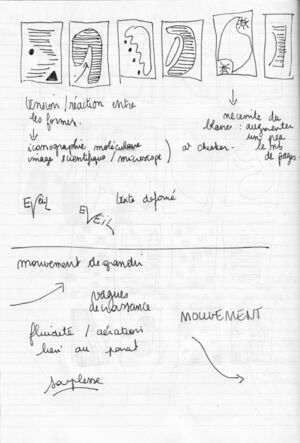 tension/réaction entre
les formes.
iconographie moléculaire
image scientifique / microscope) à checker.
nécessite du
blanc : augmenter
un peu
le nb
de pages
EVEIL
EVEIL
texte déformé
mouvement de grandir
vagues
de croissance
fluidité / aération
lien au
souplesse
MOUVEMENT